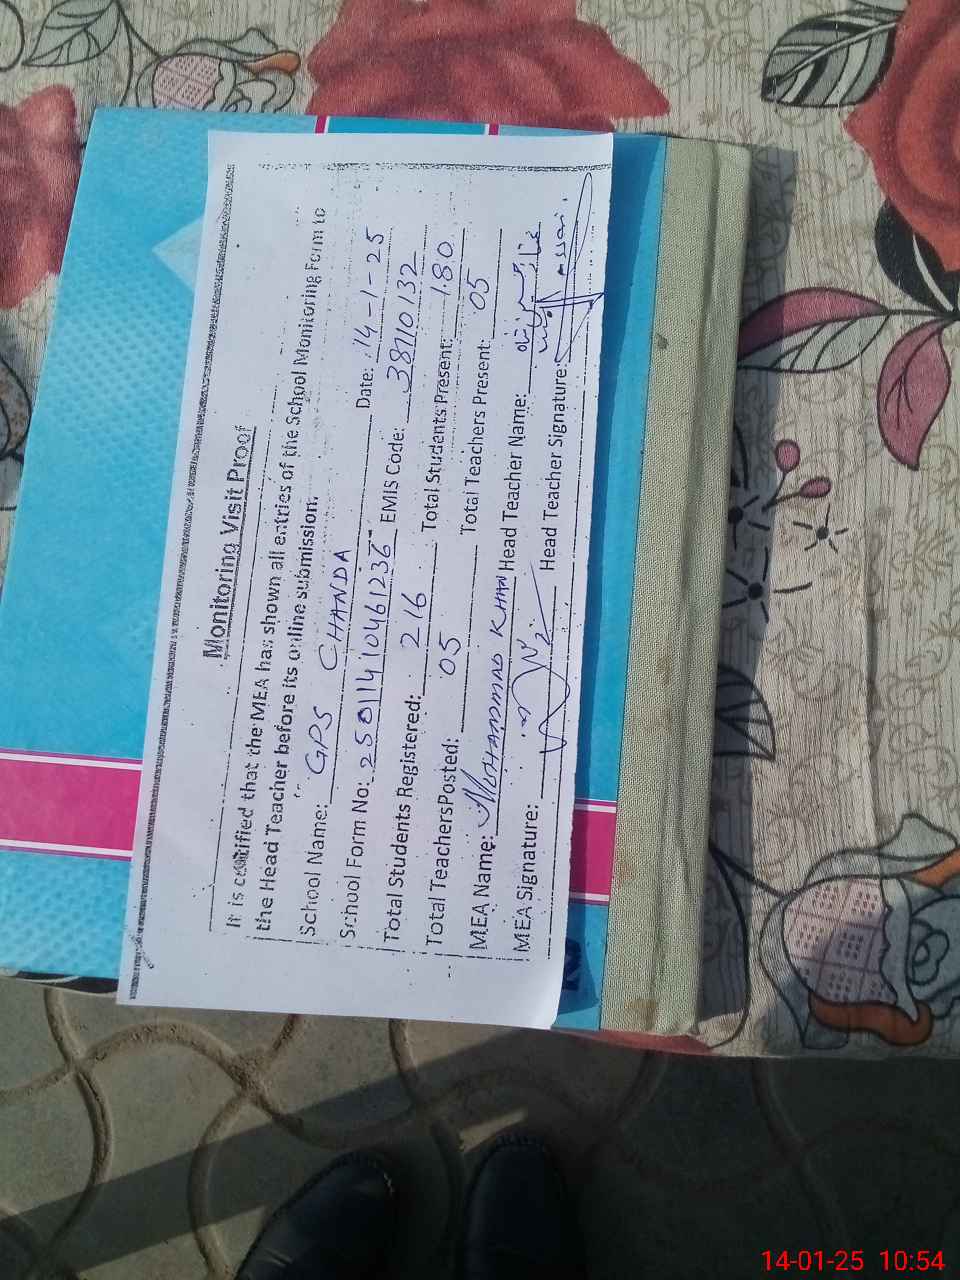 Monitoring Visit Proof
It is certified that the MEA has shown all entries of the School Monitoring Form to
the Head Teacher before its online submission.
School Name: GPS CHANDA Date: 14-1-25
School Form No: 25011410461236 EMIS Code: 38110132
Total Students Registered: 216 Total Students Present: 180
Total Teachers Posted: 05 Total Teachers Present: 05
MEA Name: MOHAMMAD KHAN Head Teacher Name:
MEA Signature: Head Teacher Signature:
14-01-25 10:54